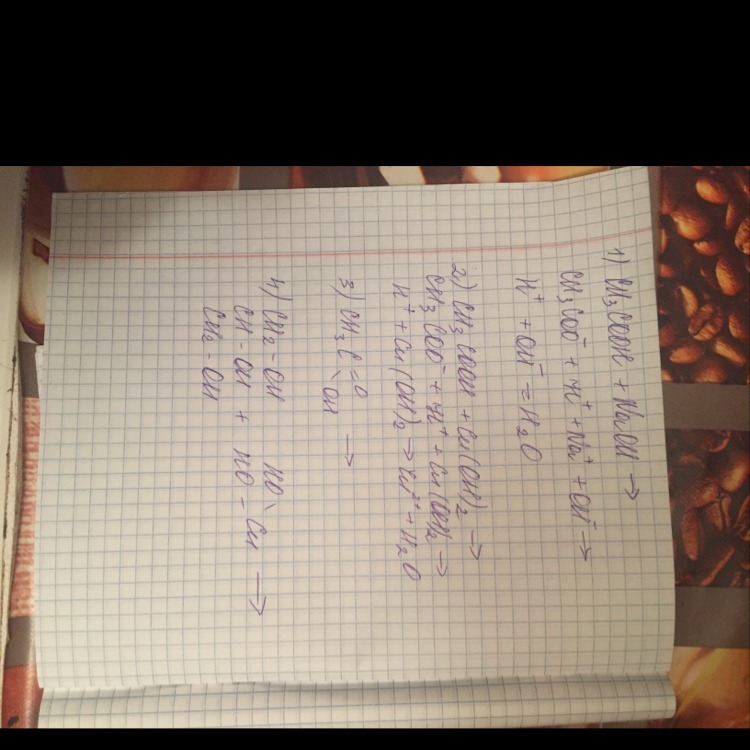 1) CH₃COOH + NaOH →
CH₃COO⁻ + H⁺ + Na⁺ + OH⁻ →
H⁺ + OH⁻ = H₂O
2) CH₃COOH + Cu(OH)₂ →
CH₃COO⁻ + H⁺ + Cu(OH)₂ →
H⁺ + Cu(OH)₂ → Cu²⁺ + H₂O
3) CH₃C=O
\OH →
4) CH₂-OH HO\
CH-OH + HO-Cu →
CH₂-OH